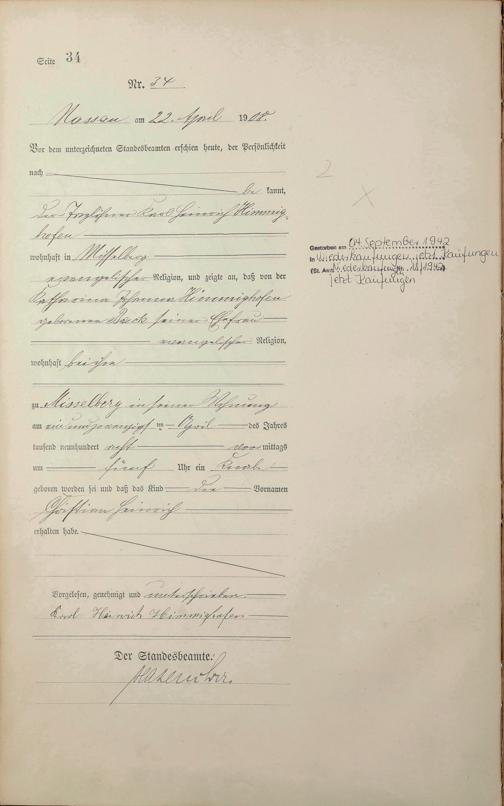 Seite 34
Nr. 34
Nassau am 22. April 1908.
Vor dem unterzeichneten Standesbeamten erschien heute, der Persönlichkeit
nach be kannt,
der Taglöhner Karl Heinrich Himmig-
hofen
wohnhaft in Misselberg
evangelischer Religion, und zeigte an, daß von der
Katharina Johanna Himmighofen
geborenen Buck seiner Ehefrau
evangelischer Religion,
wohnhaft bei ihm
zu Misselberg in seiner Wohnung
am ein und zwanzigsten April des Jahres
tausend neunhundert acht vor mittags
um fünf Uhr ein Knabe
geboren worden sei und daß das Kind die Vornamen
Christian Heinrich
erhalten habe.
Vorgelesen, genehmigt und unterschrieben.
Karl Heinrich Himmighofen
Der Standesbeamte.
2
X
Gestorben am 04. September 1942
in Niederkaufungen, jetzt Kaufungen
(St. Amt Niederkaufungen Nr. 18/1942)
jetzt Kaufungen